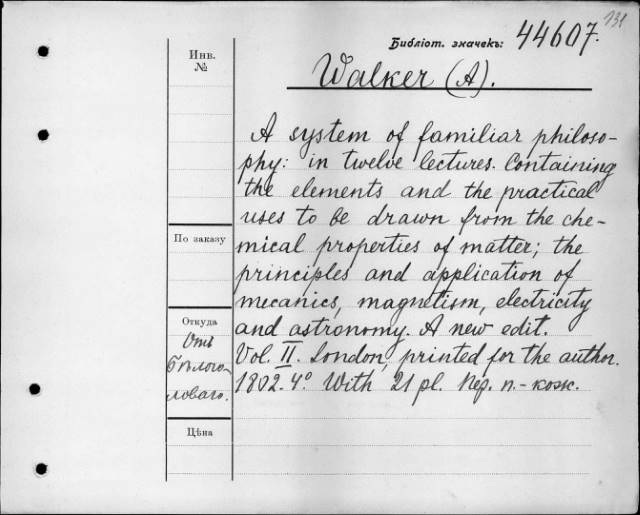 131
Библіот. значекъ: 44607.
Инв.
№
Walker (A).
A system of familiar philoso-
phy: in twelve lectures. Containing
the elements and the practical
uses to be drawn from the che-
mical properties of matter; the
principles and application of
mecanics, magnetism, electricity
and astronomy. A new edit.
Vol. II. London, printed for the author.
1802. 4° With 21 pl. Пер. п.-кож.
По заказу
Откуда
Отъ
Бѣлого-
ловаго.
Цѣна